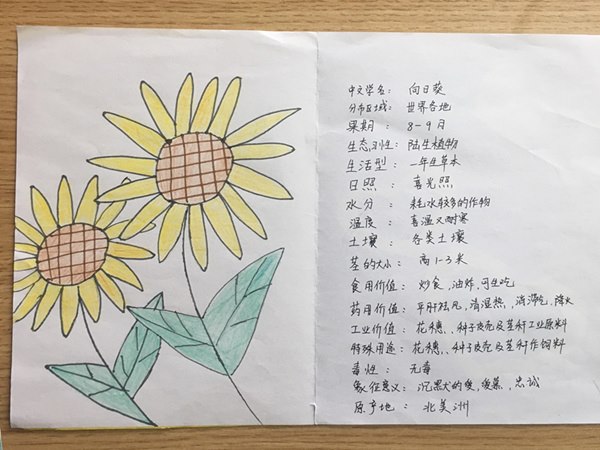 中文学名： 向日葵
分布区域： 世界各地
果期： 8-9月
生态习性： 陆生植物
生活型： 一年生草本
日照： 喜光照
水分： 耗水较多的作物
温度： 喜温又耐寒
土壤： 各类土壤
茎的大小： 高1-3米
食用价值： 炒食、油炸、可生吃
药用价值： 平肝祛风，清湿热，消滞气，降火
工业价值： 花穗、、种子皮壳及茎秆工业原料
特殊用途： 花穗、、种子皮壳及茎秆作饲料
毒性： 无毒
象征意义： 沉默的爱，爱慕，忠诚
原产地： 北美洲